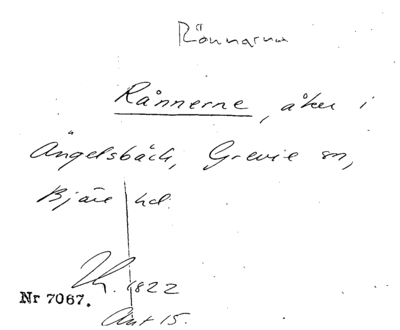 Rönnarna
Rånnerne, åker i
Ängelsbäck, Grevie sn,
Bjäre hd.
1822
Nr 7067.
Ant 15.